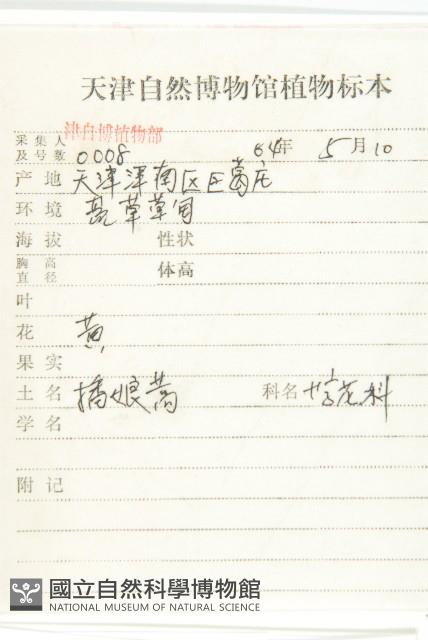 天津自然博物馆植物标本
津自博植物部
采集人
及号数 0008 64年 5月10
产地 天津津南区巨葛庄
环境 草草甸
海拔 性状
胸高 体高
直径
叶
花 黄
果实
土名 播娘蒿 科名 十字花科
学名
附记
國立自然科學博物館
NATIONAL MUSEUM OF NATURAL SCIENCE